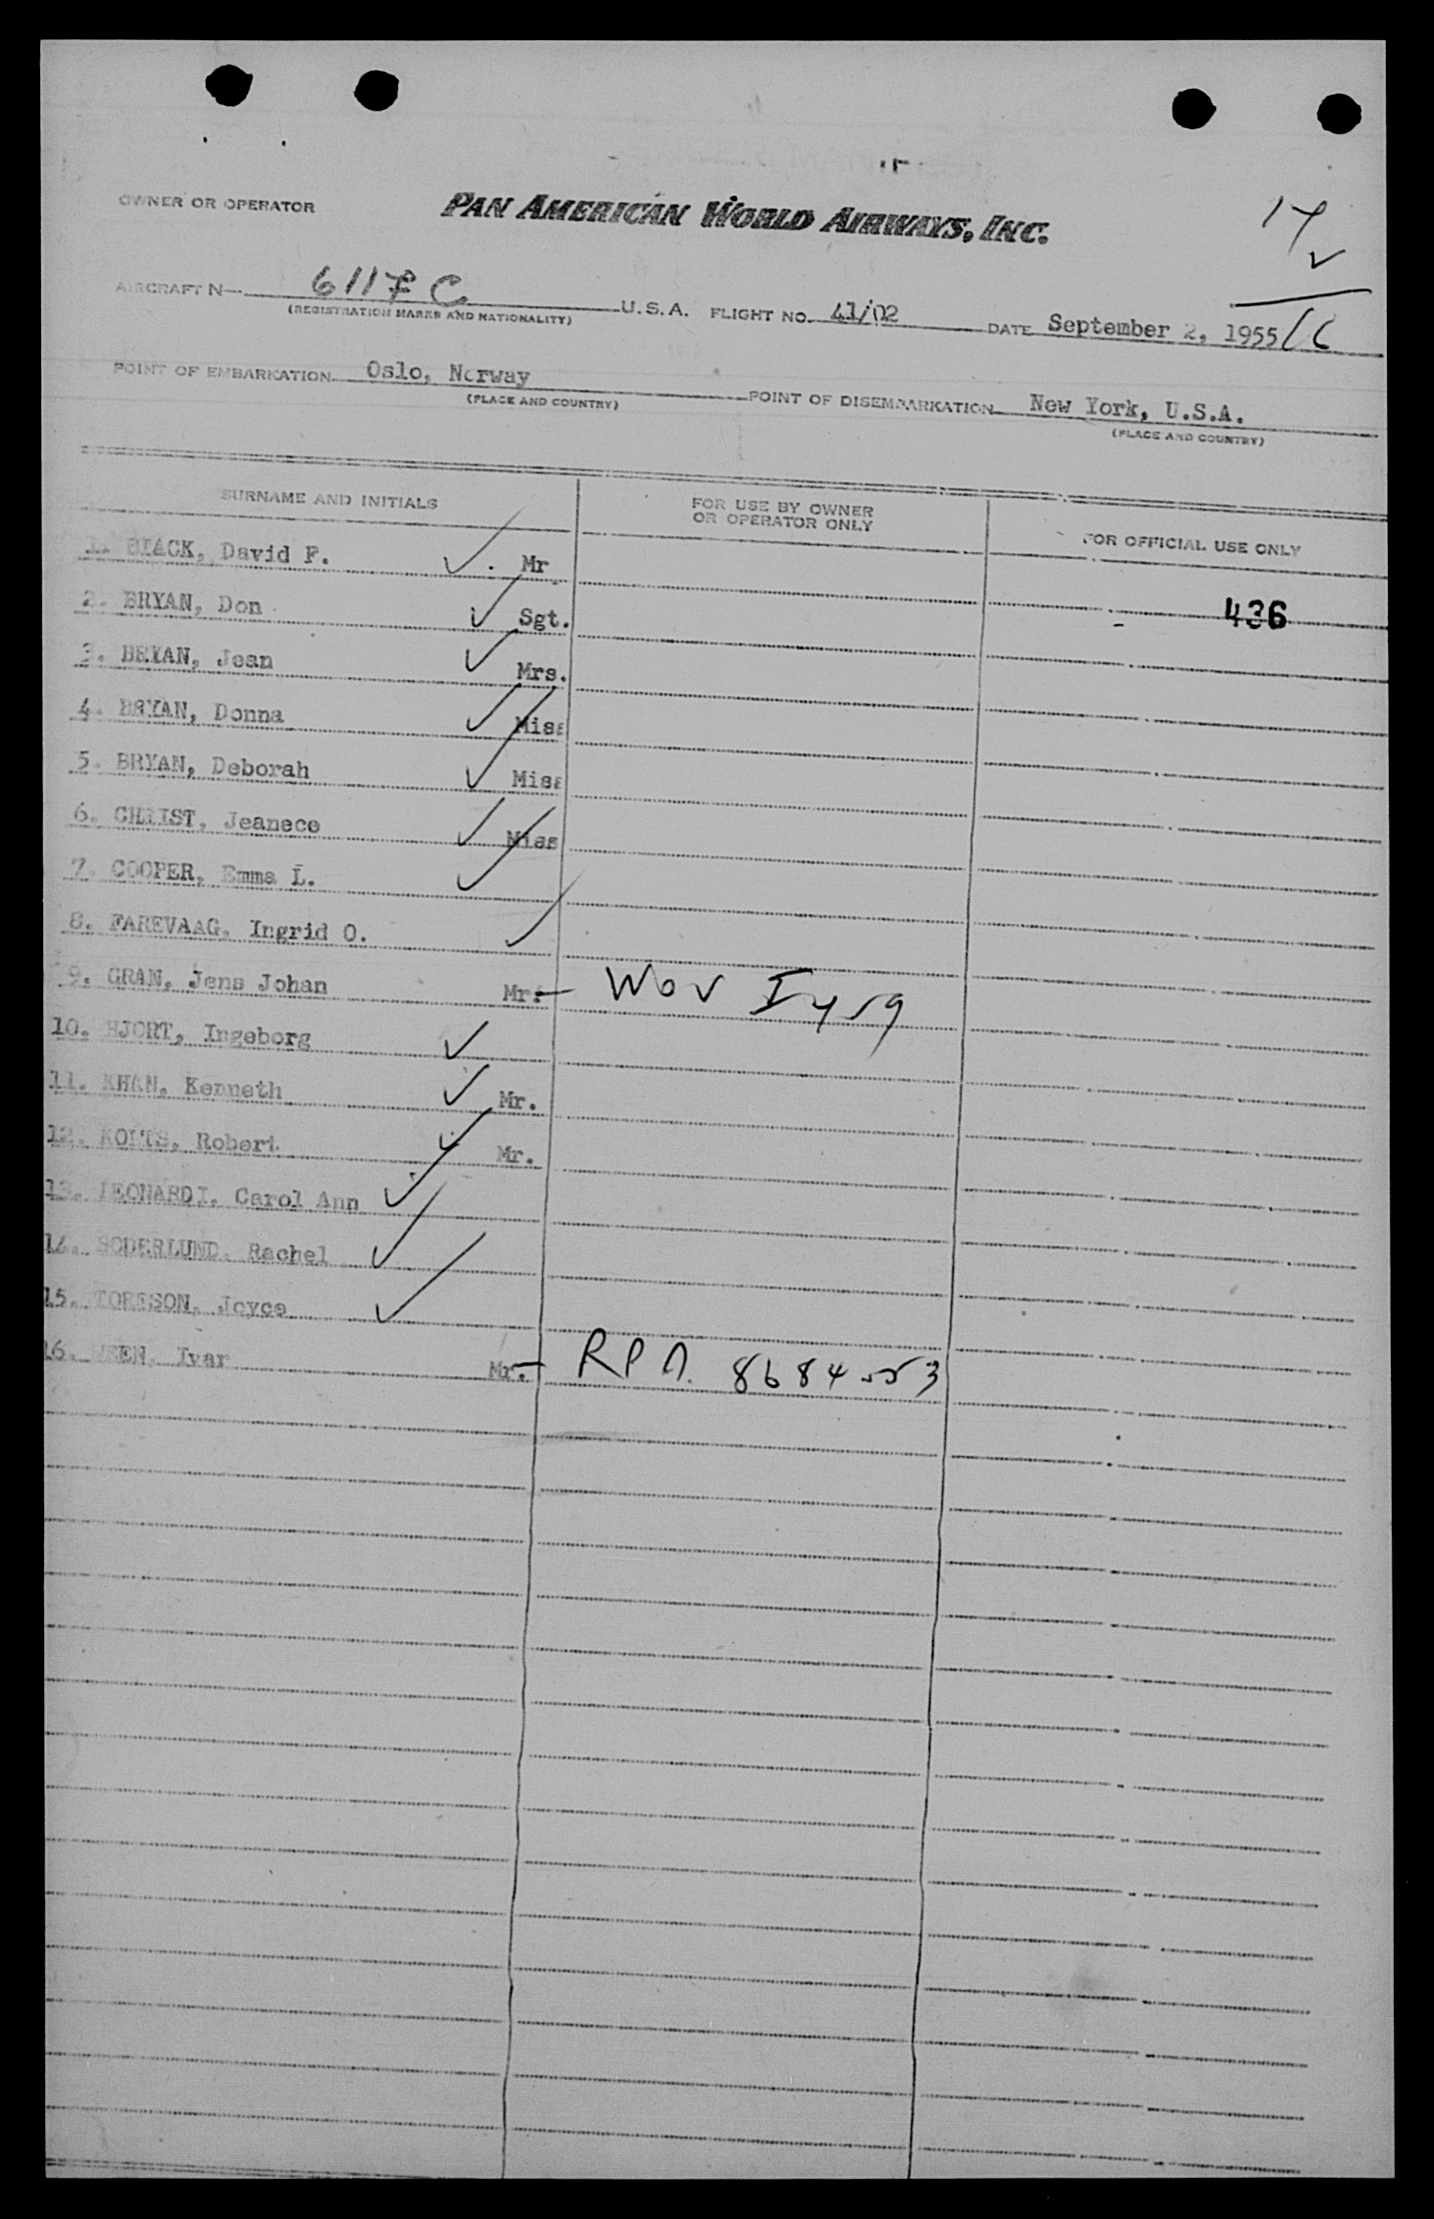 OWNER OR OPERATOR PAN AMERICAN WORLD AIRWAYS, INC.
14
AIRCRAFT N— 6117 C U.S.A. FLIGHT NO. 41/02 DATE September 2, 1955
16
(REGISTRATION MARKS AND NATIONALITY)
POINT OF EMBARKATION Oslo, Norway POINT OF DISEMBARKATION New York, U.S.A.
(PLACE AND COUNTRY) (PLACE AND COUNTRY)
SURNAME AND INITIALS FOR USE BY OWNER OR OPERATOR ONLY FOR OFFICIAL USE ONLY
1. BLACK, David F. Mr.
436
2. BRYAN, Don Sgt.
3. BRYAN, Jean Mrs.
4. BRYAN, Donna Miss
5. BRYAN, Deborah Miss
6. CHRIST, Jeanece Miss
7. COOPER, Emma L.
8. FAREVAAG, Ingrid O.
9. GRAN, Jens Johan Mr.
10. HJORT, Ingeborg
11. KHAN, Kenneth Mr.
12. Robert Mr.
13. LEONARDI, Carol Ann
14. SODERLUND, Rachel
15. Joyce
16. Ivar Mr.